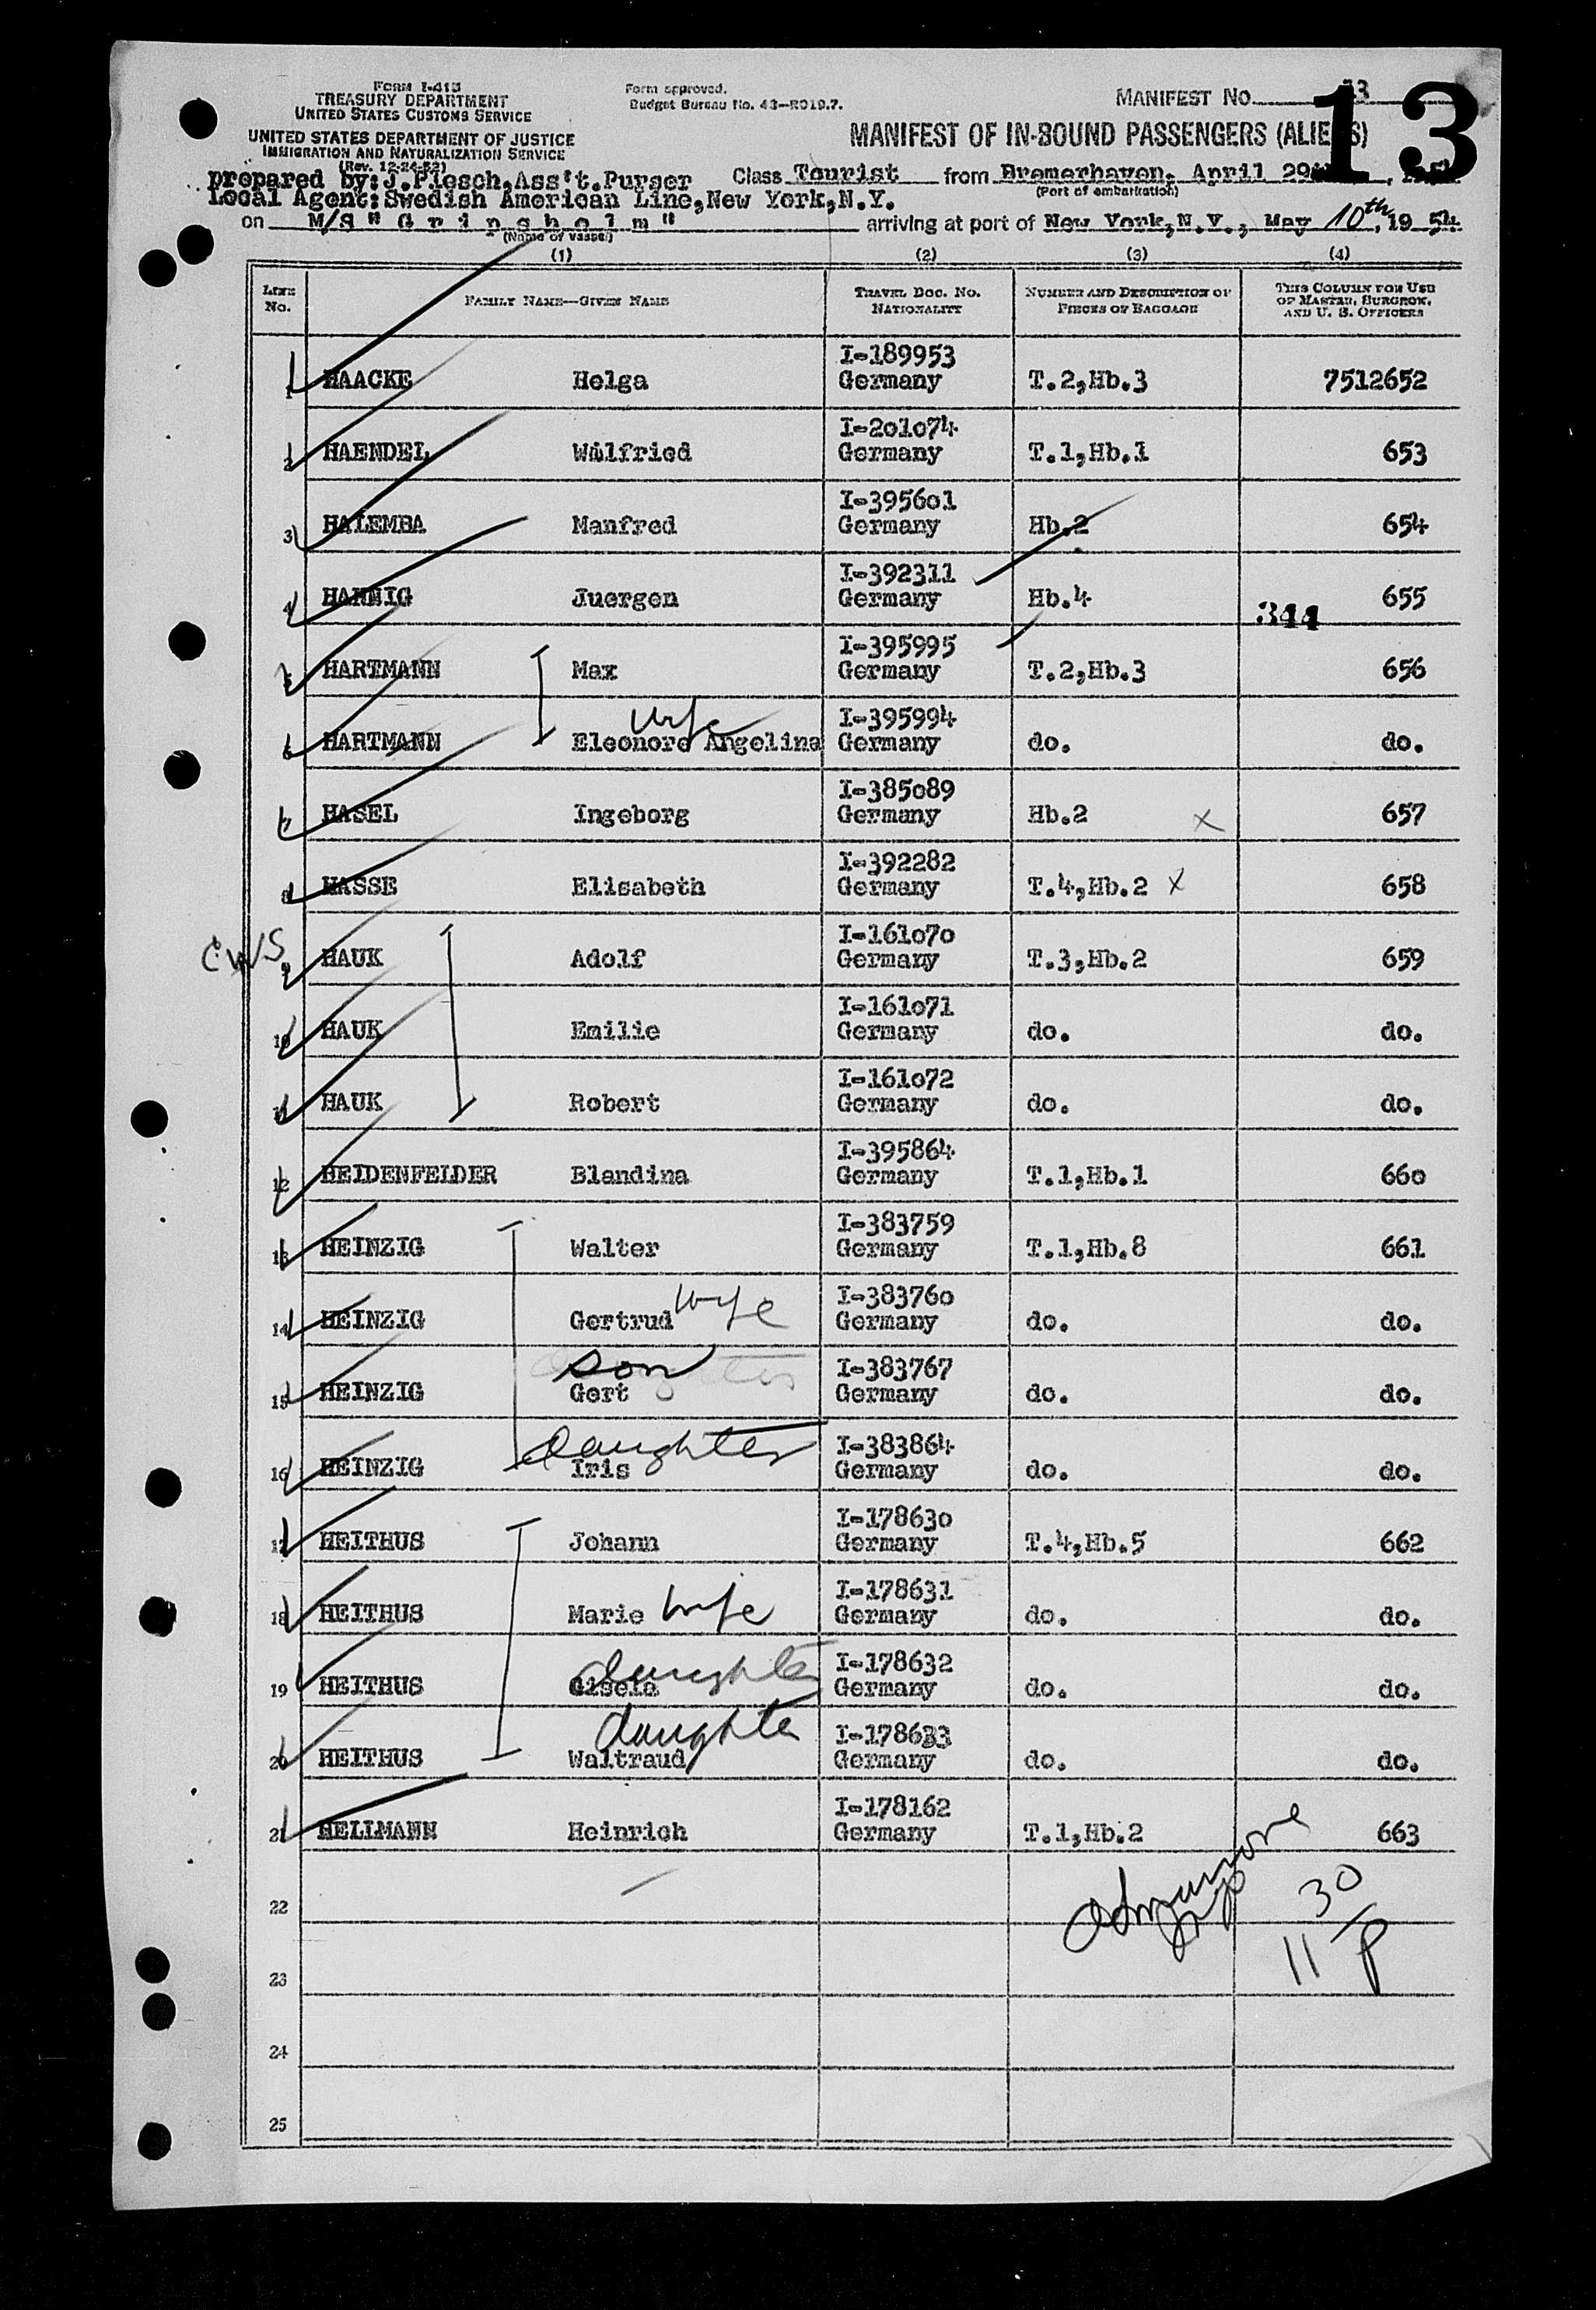 FORM I-418
TREASURY DEPARTMENT
UNITED STATES CUSTOMS SERVICE
UNITED STATES DEPARTMENT OF JUSTICE
IMMIGRATION AND NATURALIZATION SERVICE
(Rev. 12-24-52)
Form approved.
Budget Bureau No. 43—R019.7.
MANIFEST No. 13
13
MANIFEST OF IN-BOUND PASSENGERS (ALIENS)
prepared by: J.Plesch,Ass't.Purser Class Tourist from Bremerhaven, April 29th
(Port of embarkation)
Local Agent:Swedish American Line,New York,N.Y.
on M/S " G r i p s h o l m " arriving at port of New York,N.Y., May 10th, 19 54
(Name of vessel)
(1) (2) (3) (4)
LINE No. FAMILY NAME—GIVEN NAME TRAVEL DOC. NO. NATIONALITY NUMBER AND DESCRIPTION OF PIECES OF BAGGAGE THIS COLUMN FOR USE OF MASTER, SURGEON, AND U. S. OFFICERS
I-189953
1 HAACKE Helga Germany T.2,Hb.3 7512652
I-201074
2 HAENDEL Wilfried Germany T.1,Hb.1 653
I-395601
3 HALEMBA Manfred Germany Hb.2 654
I-392311
4 HARNIG Juergen Germany Hb.4 655
344
I-395995
5 HARTMANN Max Germany T.2,Hb.3 656
wife I-395994
6 HARTMANN Eleonore Angelina Germany do. do.
I-385089
7 HASEL Ingeborg Germany Hb.2 x 657
I-392282
8 HASSE Elisabeth Germany T.4,Hb.2 x 658
I-161070
CWS 9 HAUK Adolf Germany T.3,Hb.2 659
I-161071
10 HAUK Emilie Germany do. do.
I-161072
11 HAUK Robert Germany do. do.
I-395864
12 HEIDENFELDER Blandina Germany T.1,Hb.1 660
I-383759
13 HEINZIG Walter Germany T.1,Hb.8 661
I-383760
14 HEINZIG Gertrud wife Germany do. do.
son I-383767
15 HEINZIG Gert Germany do. do.
daughter I-383864
16 HEINZIG Iris Germany do. do.
I-178630
17 HEITHUS Johann Germany T.4,Hb.5 662
I-178631
18 HEITHUS Marie wife Germany do. do.
daughter I-178632
19 HEITHUS Gisela Germany do. do.
daughter I-178633
20 HEITHUS Waltraud Germany do. do.
I-178162
21 HELLMANN Heinrich Germany T.1,Hb.2 663
22
30
11 P
23
24
25